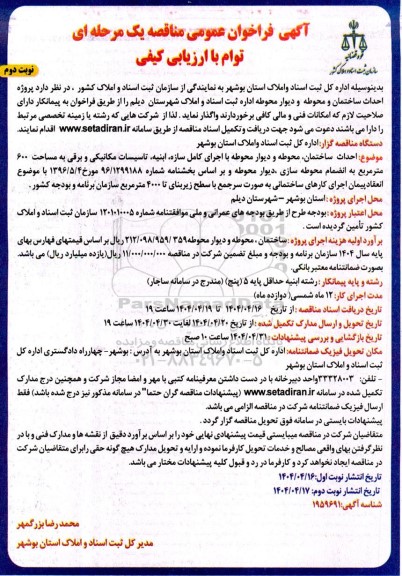 آگهی فراخوان عمومی مناقصه یک مرحله ای
توام با ارزیابی کیفی
قوه قضائیه
سازمان ثبت اسناد و املاک کشور
نوبت دوم
بدینوسیله اداره کل ثبت اسناد واملاک استان بوشهر به نمایندگی از سازمان ثبت اسناد و املاک کشور ، در نظر دارد پروژه
احداث ساختمان و محوطه و دیوار محوطه اداره ثبت اسناد و املاک شهرستان دیلم را از طریق فراخوان به پیمانکار دارای
صلاحیت لازم که امکانات فنی و مالی کافی برخوردارند واگذار نماید . لذا از شرکت هایی که رشته یا زمینه تخصصی مرتبط
را دارا می باشند دعوت می شود جهت دریافت و تکمیل اسناد مناقصه از طریق سامانه www.setadiran.ir اقدام نمایند.
دستگاه مناقصه گزار:اداره کل ثبت اسناد واملاک استان بوشهر
موضوع: احداث ساختمان، محوطه و دیوار محوطه با اجرای کامل سازه، ابنیه، تاسیسات مکانیکی و برقی به مساحت ۶۰۰
مترمربع به انضمام محوطه سازی ،دیوار محوطه و بر اساس بخشنامه شماره ۹۶/۱۲۹۹۱۸۸ مورخ۱۳۹۶/۵/۴ با موضوع
انعقادپیمان اجرای کارهای ساختمانی به صورت سرجمع با سطح زیربنای تا ۴۰۰۰ مترمربع سازمان برنامه و بودجه کشور .
محل اجرای پروژه : استان بوشهر –شهرستان دیلم
محل اعتبار پروژه :بودجه طرح از طریق بودجه های عمرانی و ملی موافقتنامه شماره ۱۲۰۱۰۱۰۰۰۵ سازمان ثبت اسناد و املاک
کشور تأمین گردیده است .
برآورد اولیه هزینه اجرای پروژه :ساختمان ، محوطه و دیوار محوطه۲۱۲/۰۹۸/۹۵۹/۳۵۹ ریال بر اساس قیمتهای فهارس بهای
پایه سال ۱۴۰۴ سازمان برنامه و بودجه و مبلغ تضمین شرکت در مناقصه ۱۱/۰۰۰/۰۰۰/۰۰۰ ریال(یازده میلیارد ریال) می باشد.
بصورت ضمانتنامه معتبر بانکی.
رشته و پایه پیمانکار : رشته ابنیه حداقل پایه ۵ (پنج) (مندرج در سامانه ساجار)
مدت اجرای کار: ۱۲ ماه شمسی( دوازده ماه)
تاریخ دریافت اسناد مناقصه : از تاریخ ۱۴۰۴/۰۴/۱۶ تا ۱۴۰۴/۰۴/۱۹ ساعت ۱۹
تاریخ تحویل و ارسال مدارک تکمیل شده : از تاریخ ۱۴۰۴/۰۴/۲۰ لغایت ۱۴۰۴/۰۴/۳۰ ساعت ۱۹
تاریخ بازگشایی و بررسی پیشنهادات : ۱۴۰۴/۰۴/۳۱ ساعت ۱۰ صبح
مکان تحویل فیزیک ضمانتنامه: اداره کل ثبت اسناد واملاک استان بوشهر به آدرس : بوشهر- چهارراه دادگستری اداره کل
ثبت اسناد و املاک استان بوشهر
- تلفن: ۳۳۳۲۸۰۰۳واحد دبیرخانه با در دست داشتن معرفینامه کتبی با مهر و امضا مجاز شرکت و همچنین درج مدارک
تکمیل شده در سامانه www.setadiran.ir (پیشنهادات مناقصه گران حتما" در سامانه مذکور نیز درج شده باشد) فقط
ارسال فیزیک ضمانتنامه شرکت در مناقصه الزامی می باشد.
پیشنهادات بایستی در سامانه فوق تحویل مناقصه گزار گردد .
متقاضیان شرکت در مناقصه میبایستی قیمت پیشنهادی نهایی خود را بر اساس برآورد دقیق از نقشه ها و مدارک فنی و با در
نظر گرفتن بهای واقعی مصالح و خدمات تحویل کارفرما نموده و ارایه و تحویل مدارک هیچ گونه حقی رابرای متقاضیان شرکت
در مناقصه ایجاد نخواهد کرد و کارفرما در رد و قبول کلیه پیشنهادات مختار می باشد.
تاریخ انتشار نوبت اول: ۱۴۰۴/۰۴/۱۶
تاریخ انتشار نوبت دوم: ۱۴۰۴/۰۴/۱۷
شناسه آگهی: ۱۹۵۹۶۹۱
محمد رضا بزرگمهر
مدیر کل ثبت اسناد و املاک استان بوشهر
ParsNamadData
۰۲۱-۸۸۳۴۹۶۷۰-۵